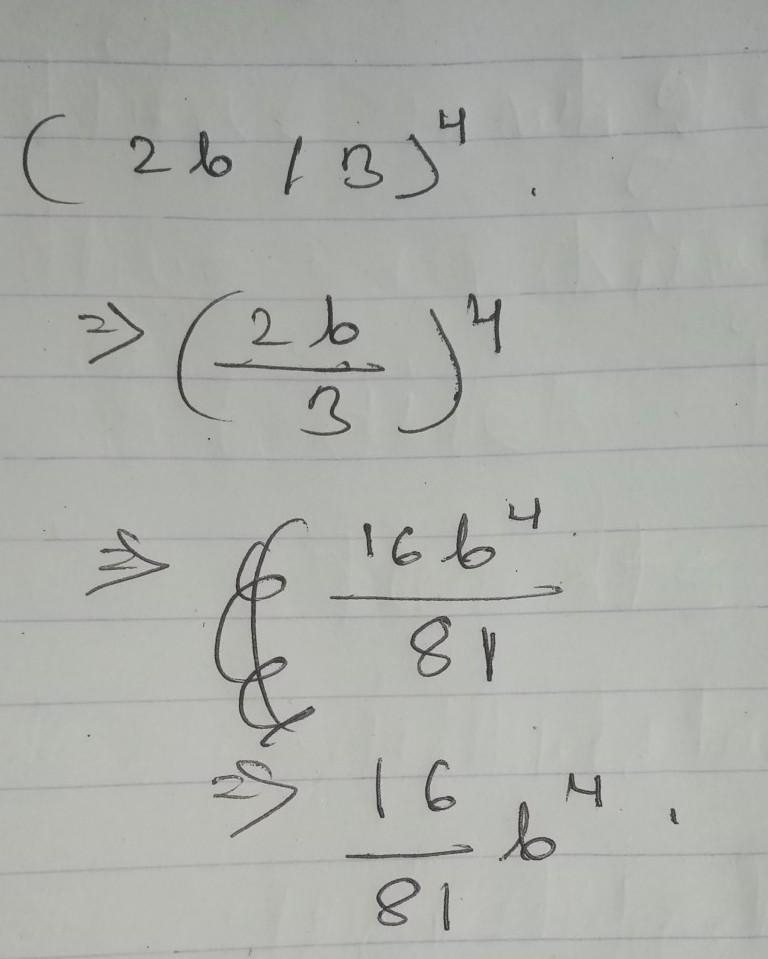 (2b/3)⁴.
⇒ (2b/3)⁴
⇒ 16b⁴/81
⇒ 16/81 b⁴.